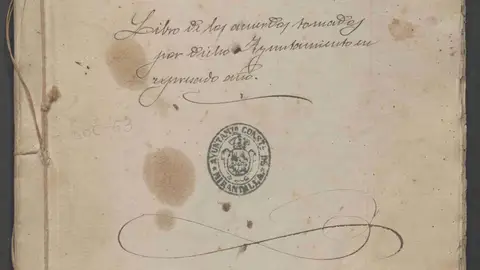 Libro de los acuerdos tomados
por dicho Ayuntamiento en
espresado año.
AYUNTAMTO CONSTL DE
MIRANDILLA